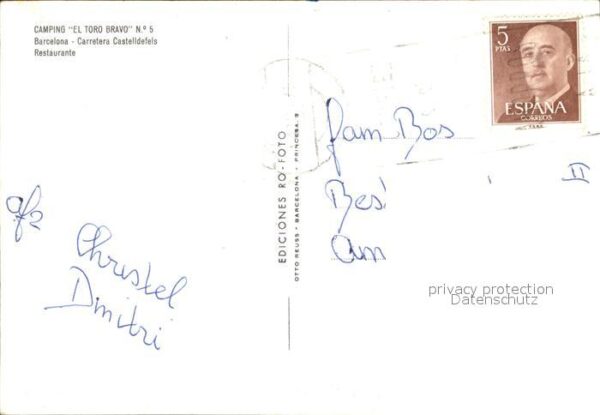 CAMPING "EL TORO BRAVO" N.º 5
Barcelona - Carretera Castelldefels
Restaurante
5
PTAS
ESPAÑA
CORREOS
EDICIONES RO-FOTO
OTTO REUSS - BARCELONA - PRINCESA, 3
fam Bos
II
Bos'
am
Christel
Dmitri
privacy protection
Datenschutz